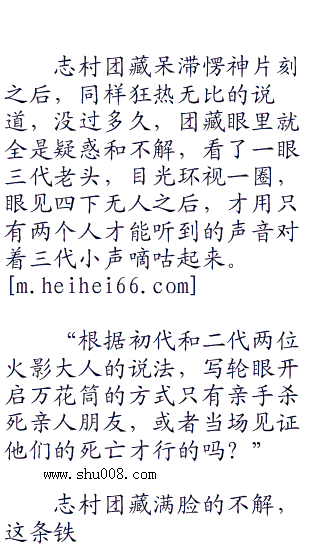 志村团藏呆滞愣神片刻
之后，同样狂热无比的说
道，没过多久，团藏眼里就
全是疑惑和不解，看了一眼
三代老头，目光环视一圈，
眼见四下无人之后，才用只
有两个人才能听到的声音对
着三代小声嘀咕起来。
[m.heihei66.com]
“根据初代和二代两位
火影大人的说法，写轮眼开
启万花筒的方式只有亲手杀
死亲人朋友，或者当场见证
他们的死亡才行的吗？”
www.shu008.com
志村团藏满脸的不解，
这条铁